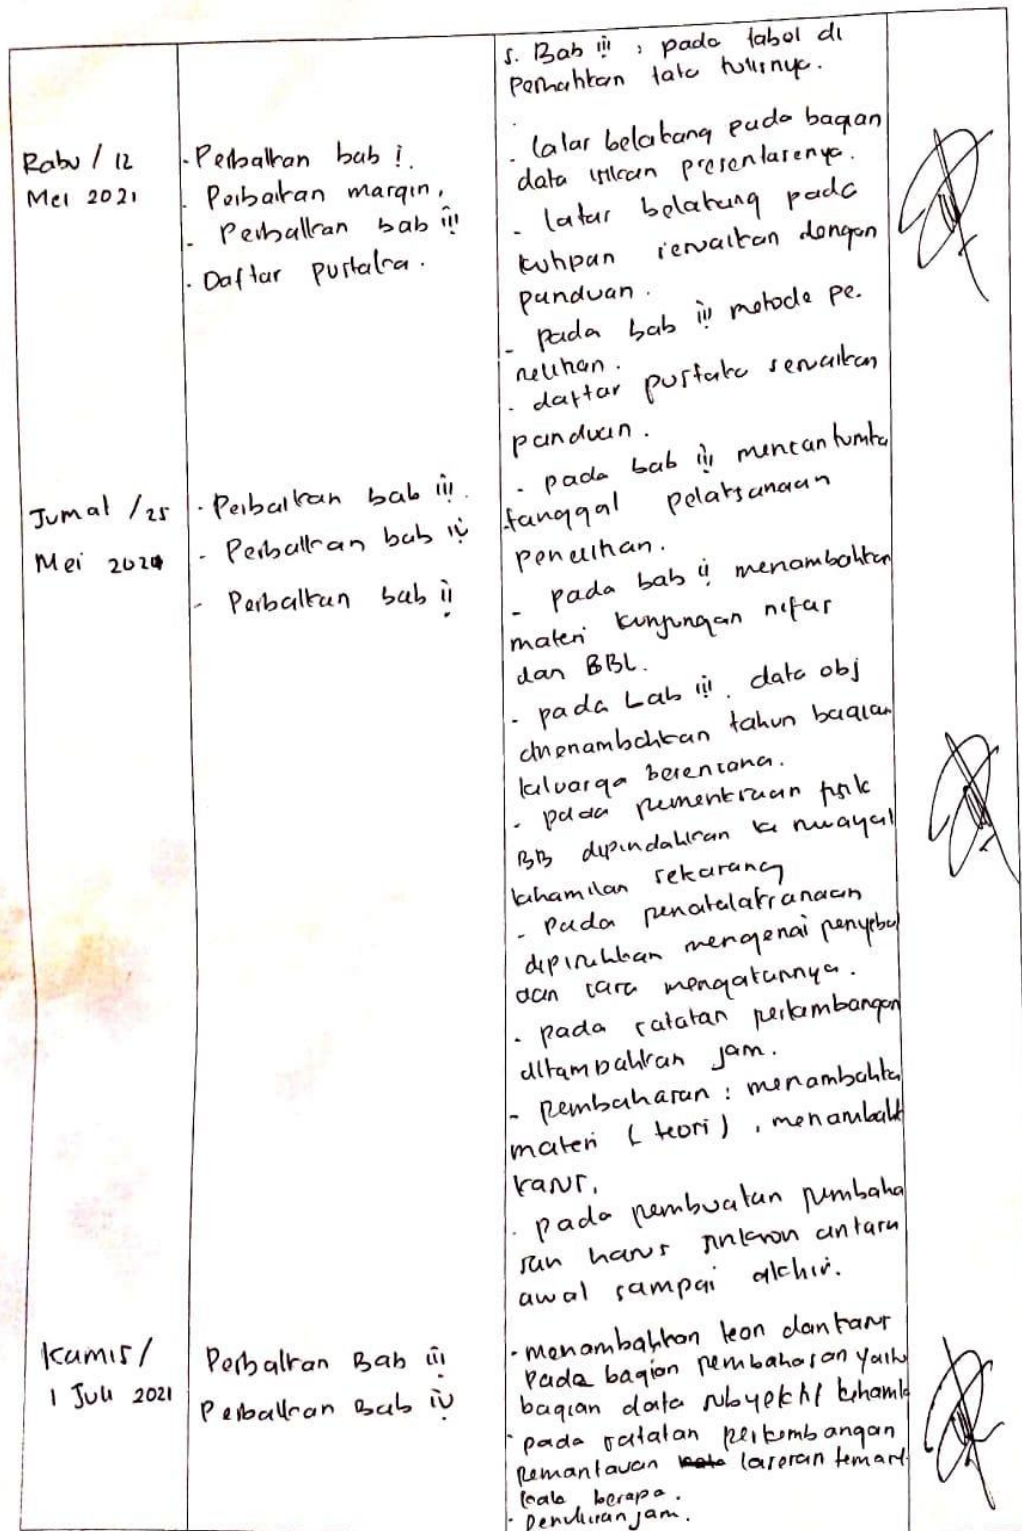 5. Bab iii, pada tabel di
perhatikan tata tulisnya.
Rabu / 12
Mei 2021
- Perbaikan bab i.
- Perbaikan margin.
- Perbaikan bab iii
- Daftar pustaka.
- latar belakang pada bagian
data isikan presentasenya.
- latar belakang pada
kutipan sesuaikan dengan
panduan.
- pada bab iii metode pe-
nelitian.
- daftar pustaka sesuaikan
panduan.
Jumat / 25
Mei 2021
- Perbaikan bab iii.
- Perbaikan bab iv
- Perbaikan bab ii
- pada bab iii mencantumka
tanggal pelaksanaan
penelitian.
- pada bab ii menambahkan
materi kunjungan nifas
dan BBL.
- pada bab iii. data obj
menambahkan tahun bagian
keluarga berencana.
- pada pemeriksaan fisik
BB dipindahkan ke riwayat
kehamilan sekarang
- Pada penatalaksanaan
mengenai penyebab
dan cara mengatasinya.
- pada catatan perkembangan
ditambahkan jam.
- pembahasan : menambahka
materi (teori), menambahk
kasus.
- pada pembuatan pembaha
san harus sinkron antara
awal sampai akhir.
Kamis /
1 Juli 2021
Perbaikan Bab iii
Perbaikan Bab iv
- menambahkan teori dan kasus
pada bagian pembahasan yaitu
bagian data subyektif kehamila
- pada catatan perkembangan
pemantauan
berapa.
- penulisan jam.